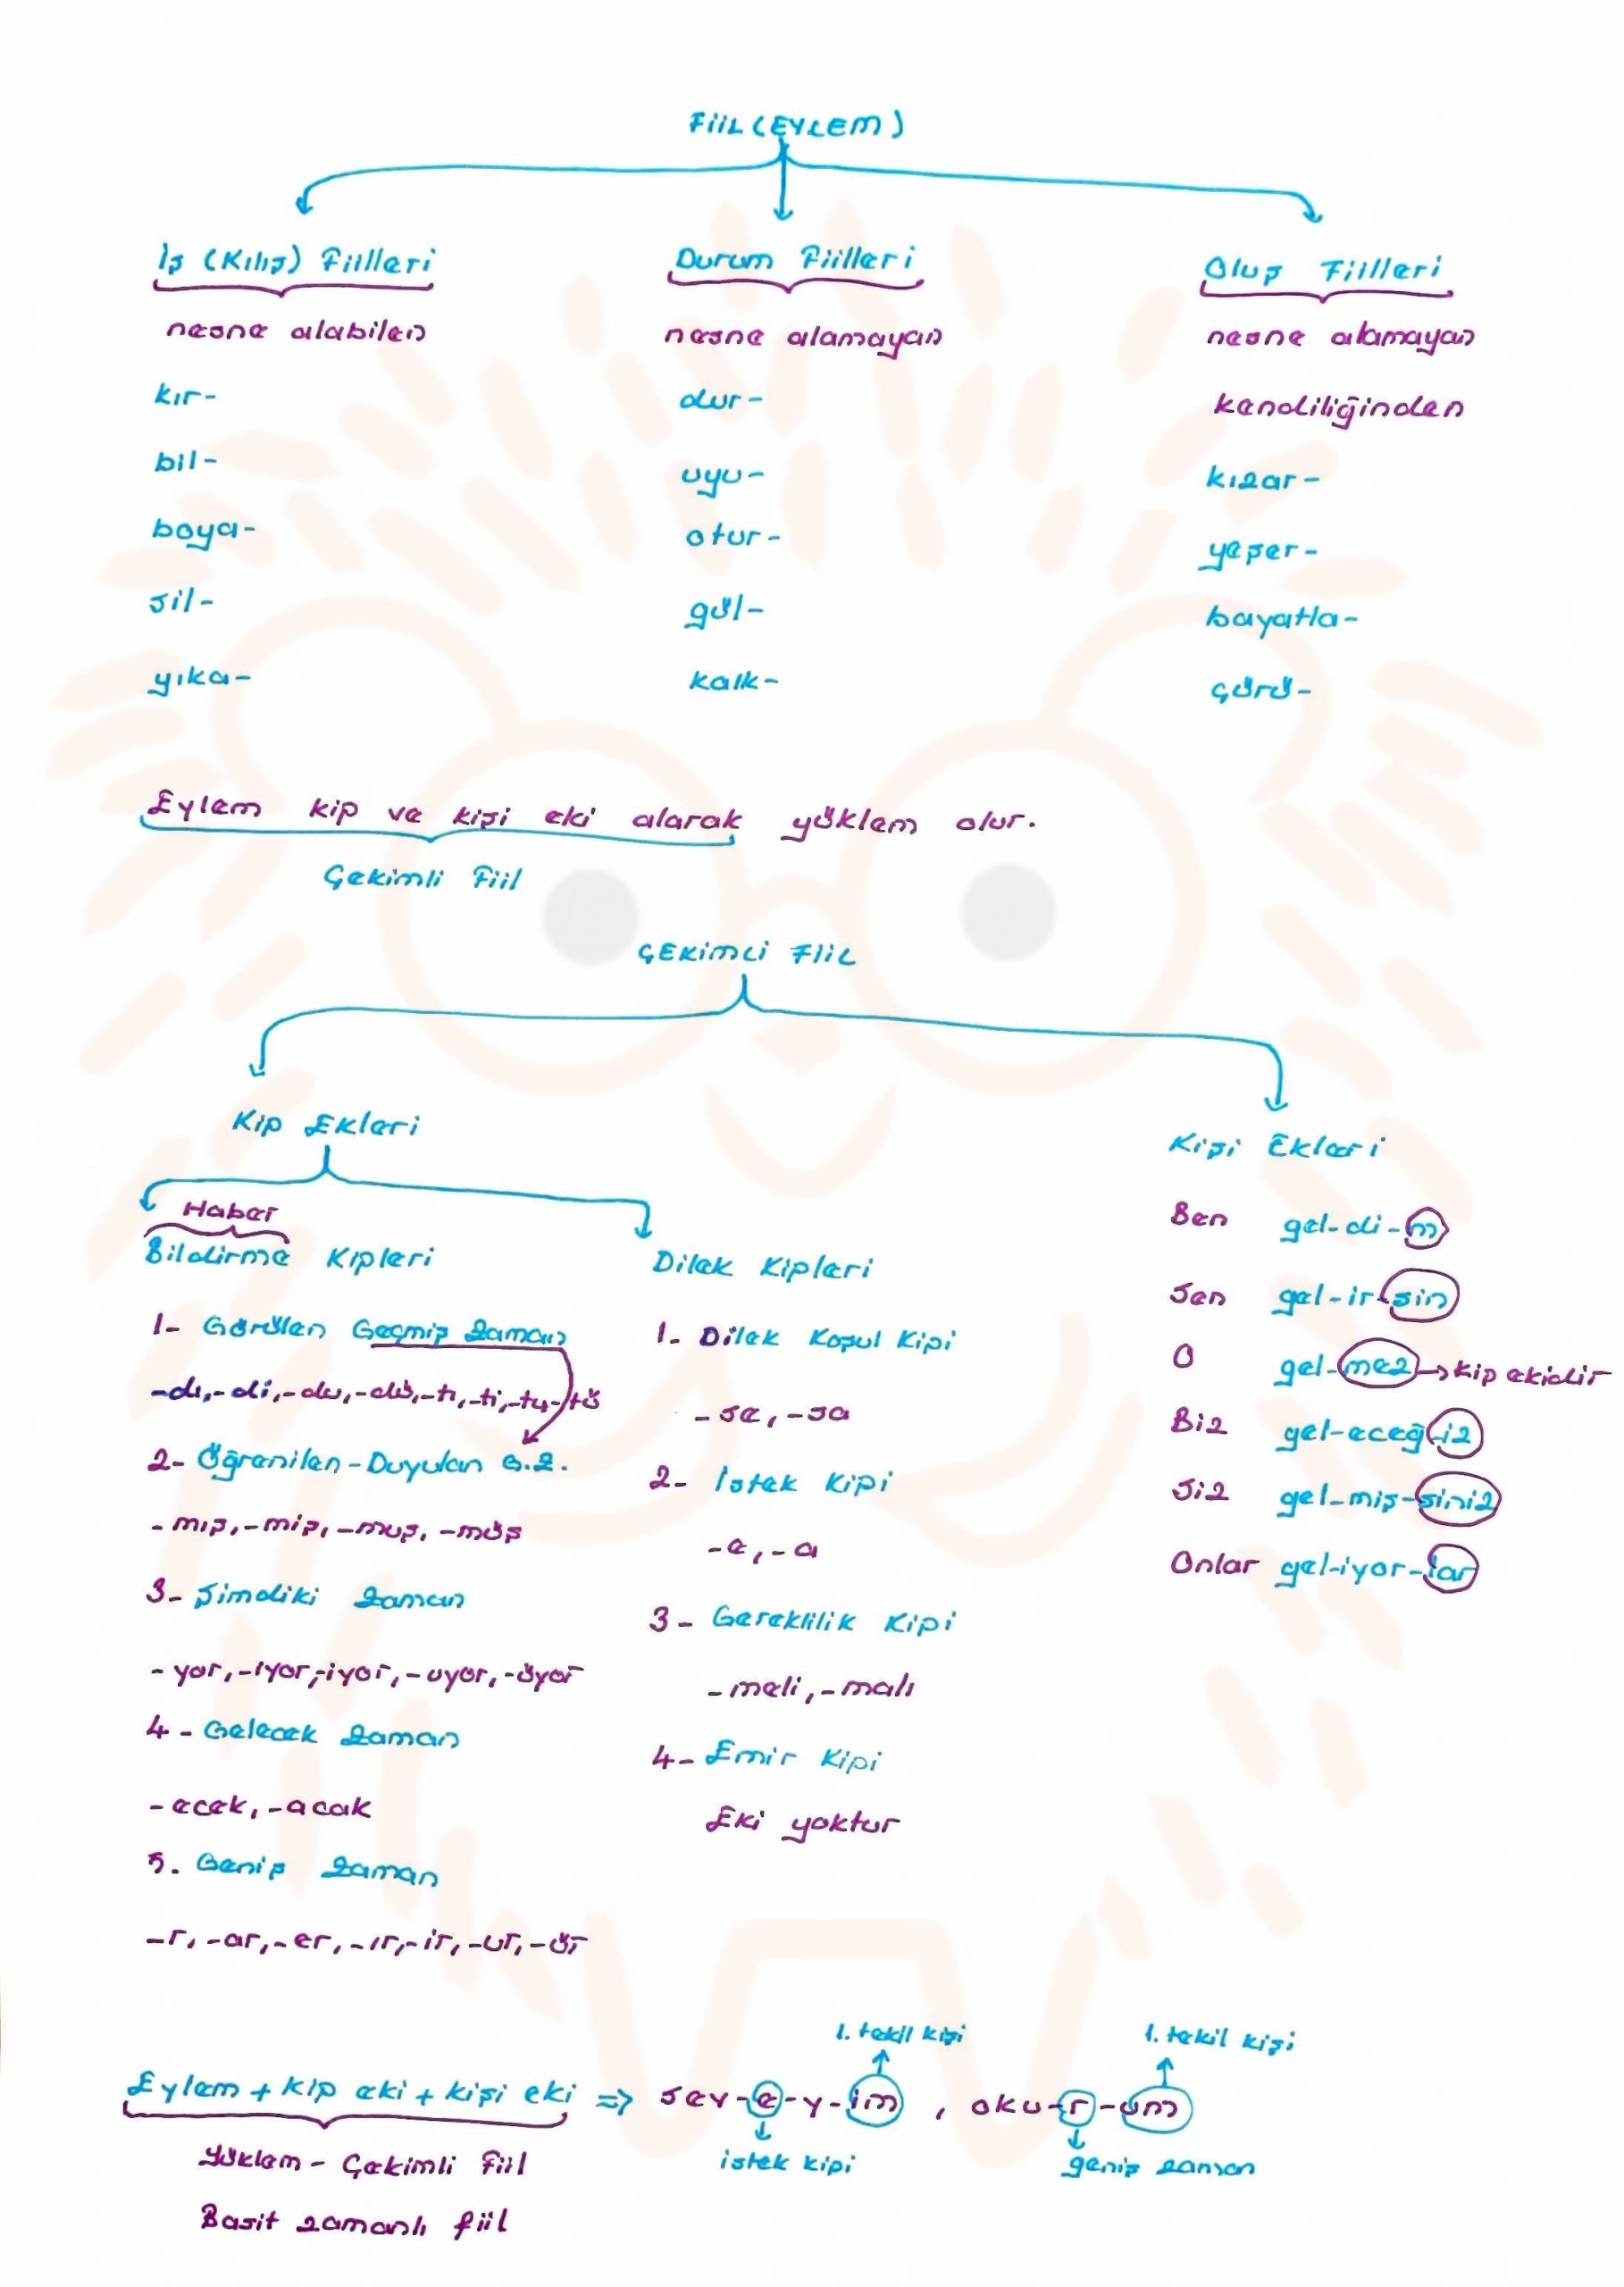 FİİL (EYLEM)
İş (Kılış) Fiilleri
nesne alabilen
kır-
bil-
boya-
sil-
yıka-
Durum Fiilleri
nesne alamayan
dur-
uyu-
otur-
gül-
kalk-
Oluş Fiilleri
nesne alamayan
kendiliğinden
kızar-
yeşer-
bayatla-
çürü-
Eylem kip ve kişi eki alarak yüklem olur.
Çekimli Fiil
ÇEKİMLİ FİİL
Kip Ekleri
Haber
Bildirme Kipleri
1- Görülen Geçmiş Zaman
-dı, -di, -du, -dü, -tı, -ti, -tu, -tü
2- Öğrenilen-Duyulan G.Z.
-mış, -miş, -muş, -müş
3- Şimdiki Zaman
-yor, -ıyor, -iyor, -uyor, -üyor
4- Gelecek Zaman
-ecek, -acak
5. Geniş Zaman
-r, -ar, -er, -ır, -ir, -ur, -ür
Dilek Kipleri
1- Dilek Koşul Kipi
-se, -sa
2- İstek Kipi
-e, -a
3- Gereklilik Kipi
-meli, -malı
4- Emir Kipi
Eki yoktur
Kişi Ekleri
Ben gel-di-m
Sen gel-ir-sin
O gel-mez → kip ekidir
Biz gel-eceğ-iz
Siz gel-miş-siniz
Onlar gel-iyor-lar
1. tekil kişi 1. tekil kişi
Eylem + kip eki + kişi eki => sev-e-y-im , oku-r-um
istek kipi geniş zaman
Yüklem - Çekimli Fiil
Basit zamanlı fiil